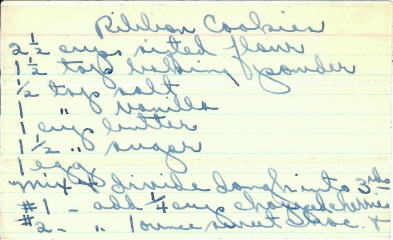 Ribbon Cookies
2 1/2 cups sifted flour
1 1/2 tsp baking powder
1/2 tsp salt
1 " vanilla
1 cup butter
1 1/2 " sugar
1 egg
mix & divide dough into 3rds
#1 - add 1/4 cup chopped cherries
#2 - " 1 ounce sweet choc. &